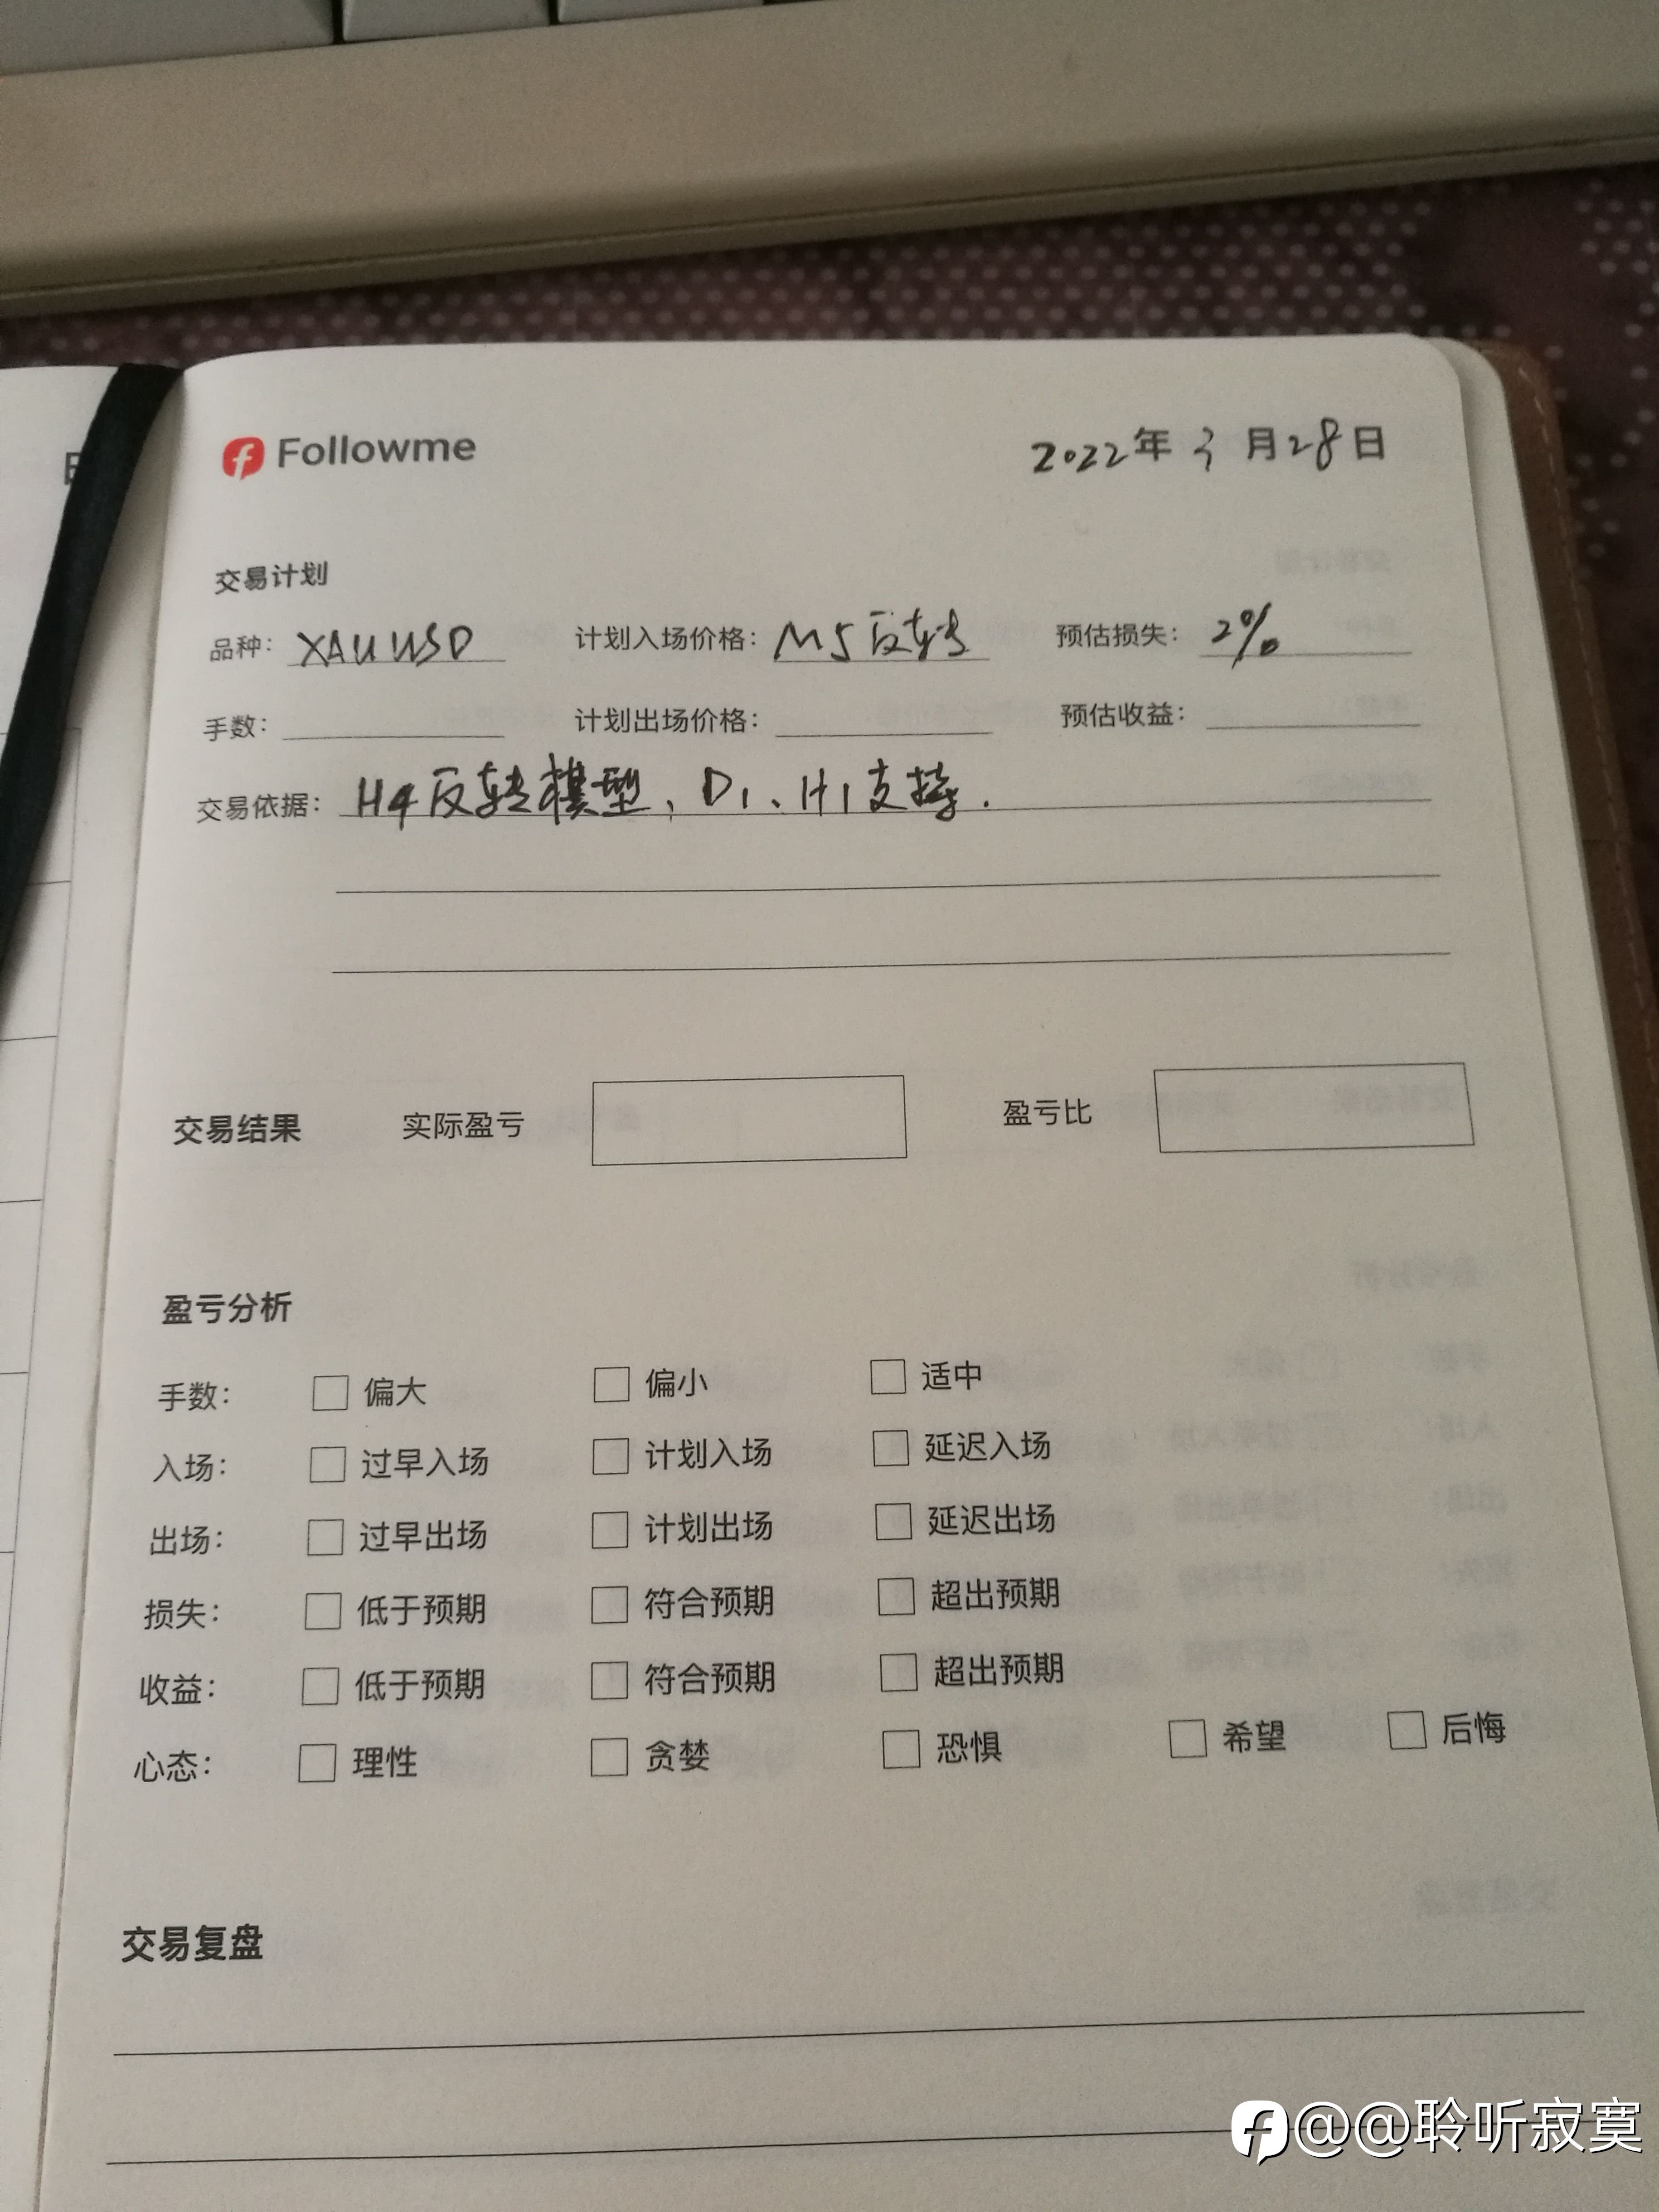 Followme
2022年 3 月28日
交易计划
品种: XAUUSD 计划入场价格: M5反转 预估损失: 2%
手数: 计划出场价格: 预估收益:
交易依据: H4反转模型, D1、H1支持.
交易结果 实际盈亏 盈亏比
盈亏分析
手数: 偏大 偏小 适中
入场: 过早入场 计划入场 延迟入场
出场: 过早出场 计划出场 延迟出场
损失: 低于预期 符合预期 超出预期
收益: 低于预期 符合预期 超出预期
心态: 理性 贪婪 恐惧 希望 后悔
交易复盘
@@聆听寂寞